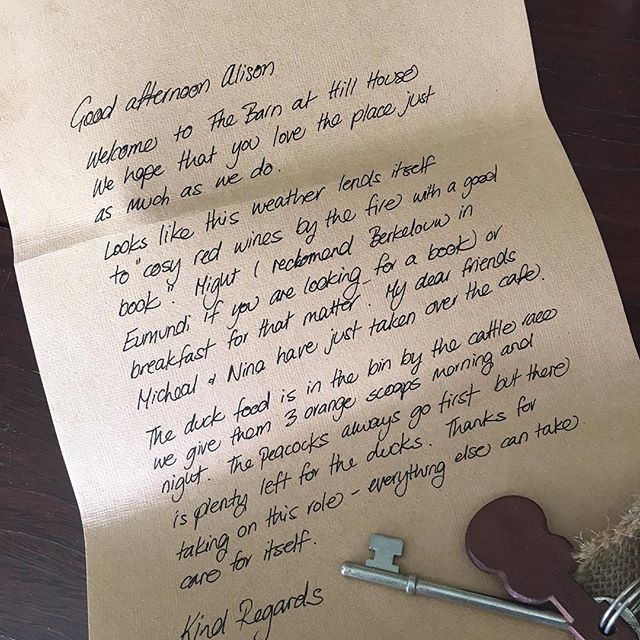 Good afternoon Alison
Welcome to The Barn at Hill House
We hope that you love the place just
as much as we do.
Looks like this weather lends itself
to "cosy red wines by the fire with a good
book". Might I reckomend Berkelouw in
Eumundi if you are looking for a book or
breakfast for that matter. My dear friends
Micheal & Nina have just taken over the cafe.
The duck food is in the bin by the cattle race
we give them 3 orange scoops morning and
night. The Peacocks always go first but there
is plenty left for the ducks. Thanks for
taking on this role - everything else can take
care for itself.
Kind Regards